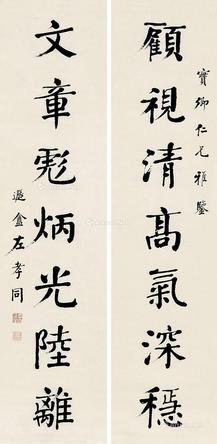 寶卿仁兄雅鑒
顧視清高氣深穩
文章彪炳光陸離
遯盦左孝同